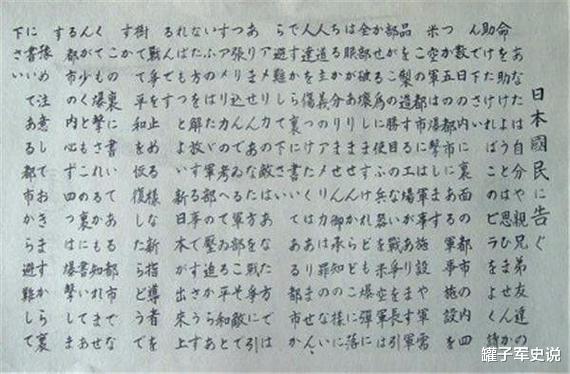 日本國民に告ぐ
あなたは自分や親兄弟友達の
命を助けようとは思ひませんか
助けたければこのビラをよく読
んで下さい
数日の内に裏面の都市の内四
つか五つの都市にある軍事施設を
米空軍は爆撃します
この都市には軍事施設や軍需
品を製造する工場があります軍
部がこの勝目のない戦争を長引
かせる為に使ふ兵器を米空軍は
全部破壊しますけれども爆弾に
は眼がありませんからどこに落
ちるか分りません御承知の様に
人道主義のアメリカは罪のない
人達を傷つけたくはありません
ですから裏に書いてある都市か
ら避難して下さい
アメリカの敵はあなた方では
ありませんあなた方を戦争に引
つ張り込んでゐる軍部こそ敵で
すアメリカの考へてゐる平和とい
ふのはたゞ軍部の壓迫からあ
なた方を解放する事ですさうす
ればもつとよい新日本が出来上
るんです
戦争を止める様な新指導者を
樹てて平和を恢復したらどうで
すか
この裏に書いてある都市でな
くても爆撃されるかも知れませ
んが少くともこの裏に書いてあ
る都市の内必ず四つは爆撃しま
す
豫め注意しておきますから裏
に書いてある都市から避難して
下さい
罐子军史说